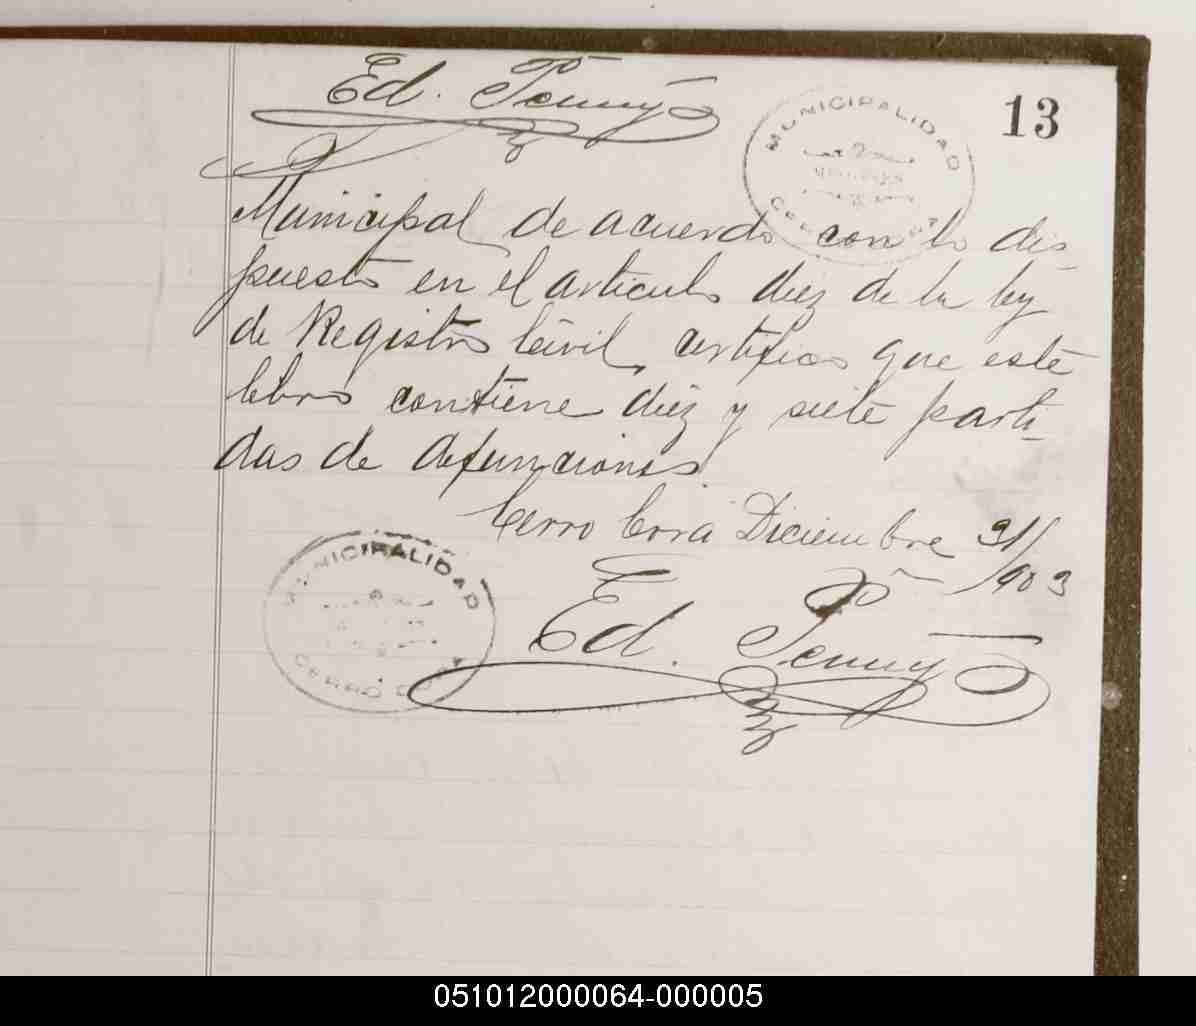 Ed. Penny
MUNICIPALIDAD
13
Municipal de acuerdo con lo dis-
puesto en el articulo diez de la ley
de Registro Civil, certifico que este
libro contiene diez y siete parti-
das de defunciones.
Cerro Cora Diciembre 31/903
MUNICIPALIDAD
CERRO CO
Ed. Penny
051012000064-000005